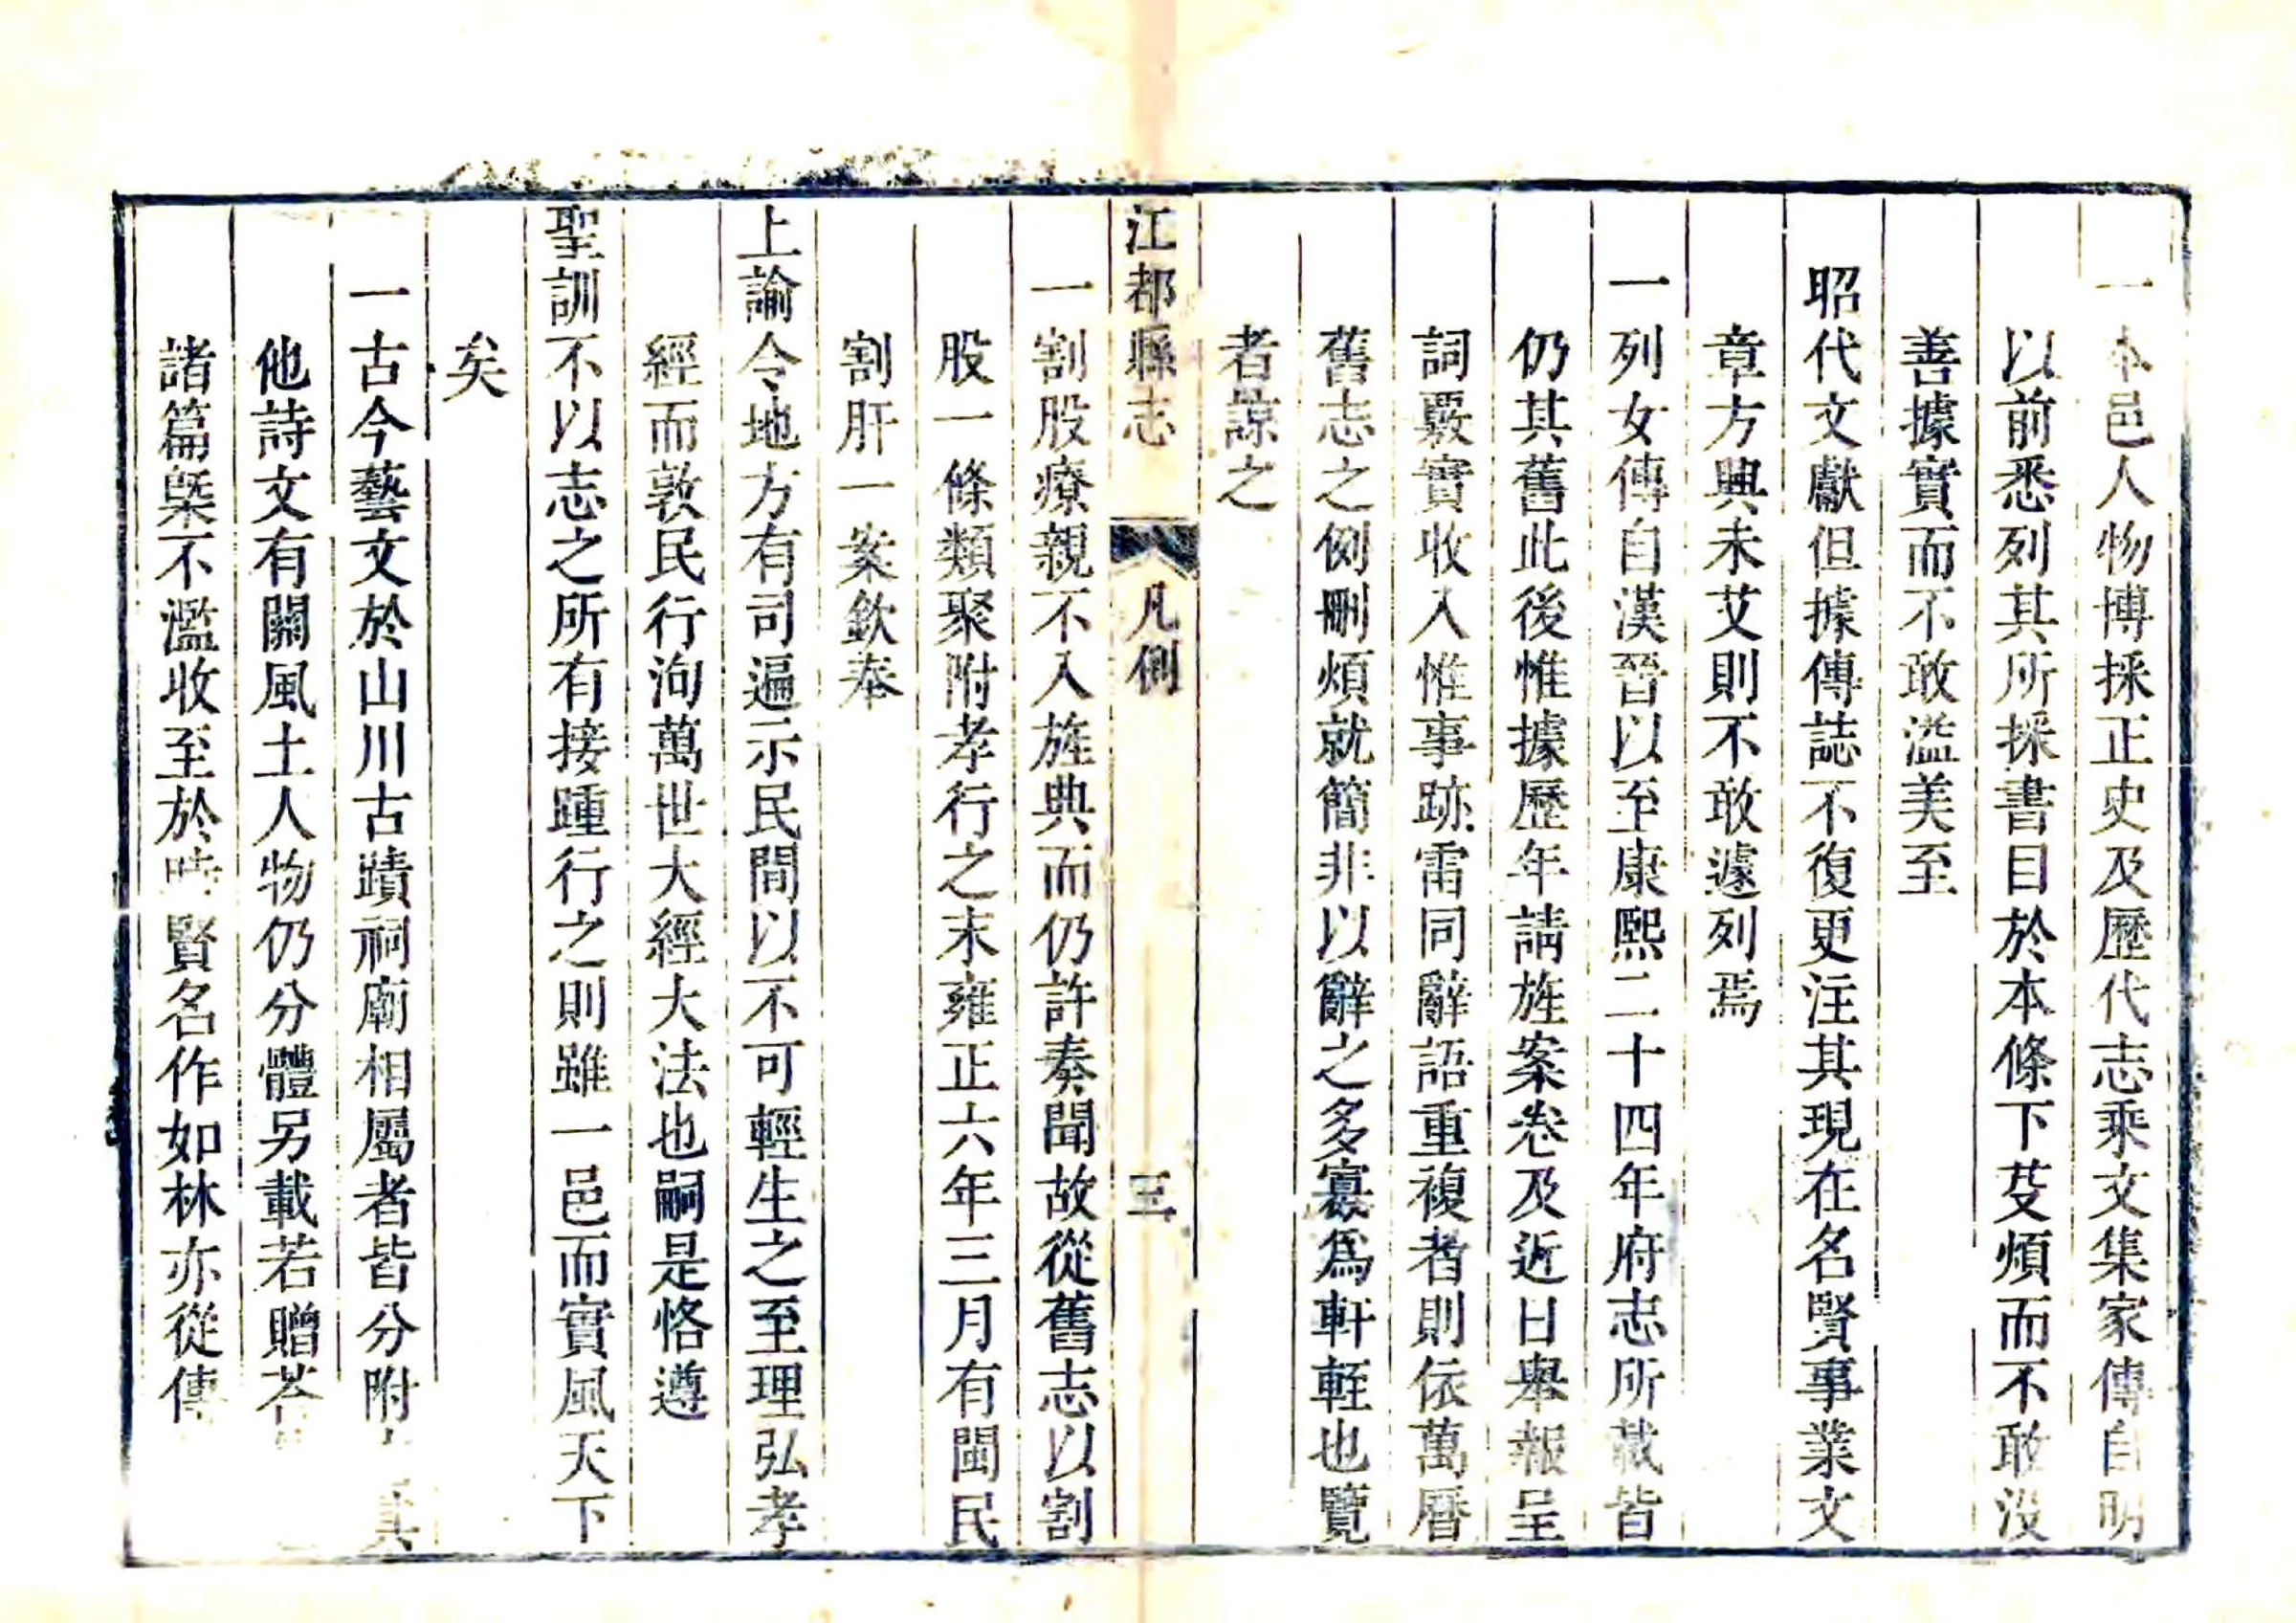 一本邑人物博採正史及歷代志乘文集家傳自明
以前悉列其所採書目於本條下芟煩而不敢沒
善據實而不敢溢美至
昭代文獻但據傳誌不復更注其現在名賢事業文
章方興未艾則不敢遽列焉
一列女傳自漢晉以至康熙二十四年府志所載皆
仍其舊此後惟據歷年請旌案卷及近日舉報呈
詞覈實收入惟事跡雷同辭語重複者則依萬曆
舊志之例刪煩就簡非以辭之多寡爲軒輊也覽
者諒之
江都縣志 凡例 三
一割股療親不入旌典而仍許奏聞故從舊志以割
股一條類聚附孝行之末雍正六年三月有閩民
割肝一案欽奉
上諭令地方有司遍示民間以不可輕生之至理弘孝
經而敦民行洵萬世大經大法也嗣是恪遵
聖訓不以志之所有接踵行之則雖一邑而實風天下
矣
一古今藝文於山川古蹟祠廟相屬者皆分附其
他詩文有關風土人物仍分體另載若贈荅
諸篇槩不濫收至於時賢名作如林亦從傳